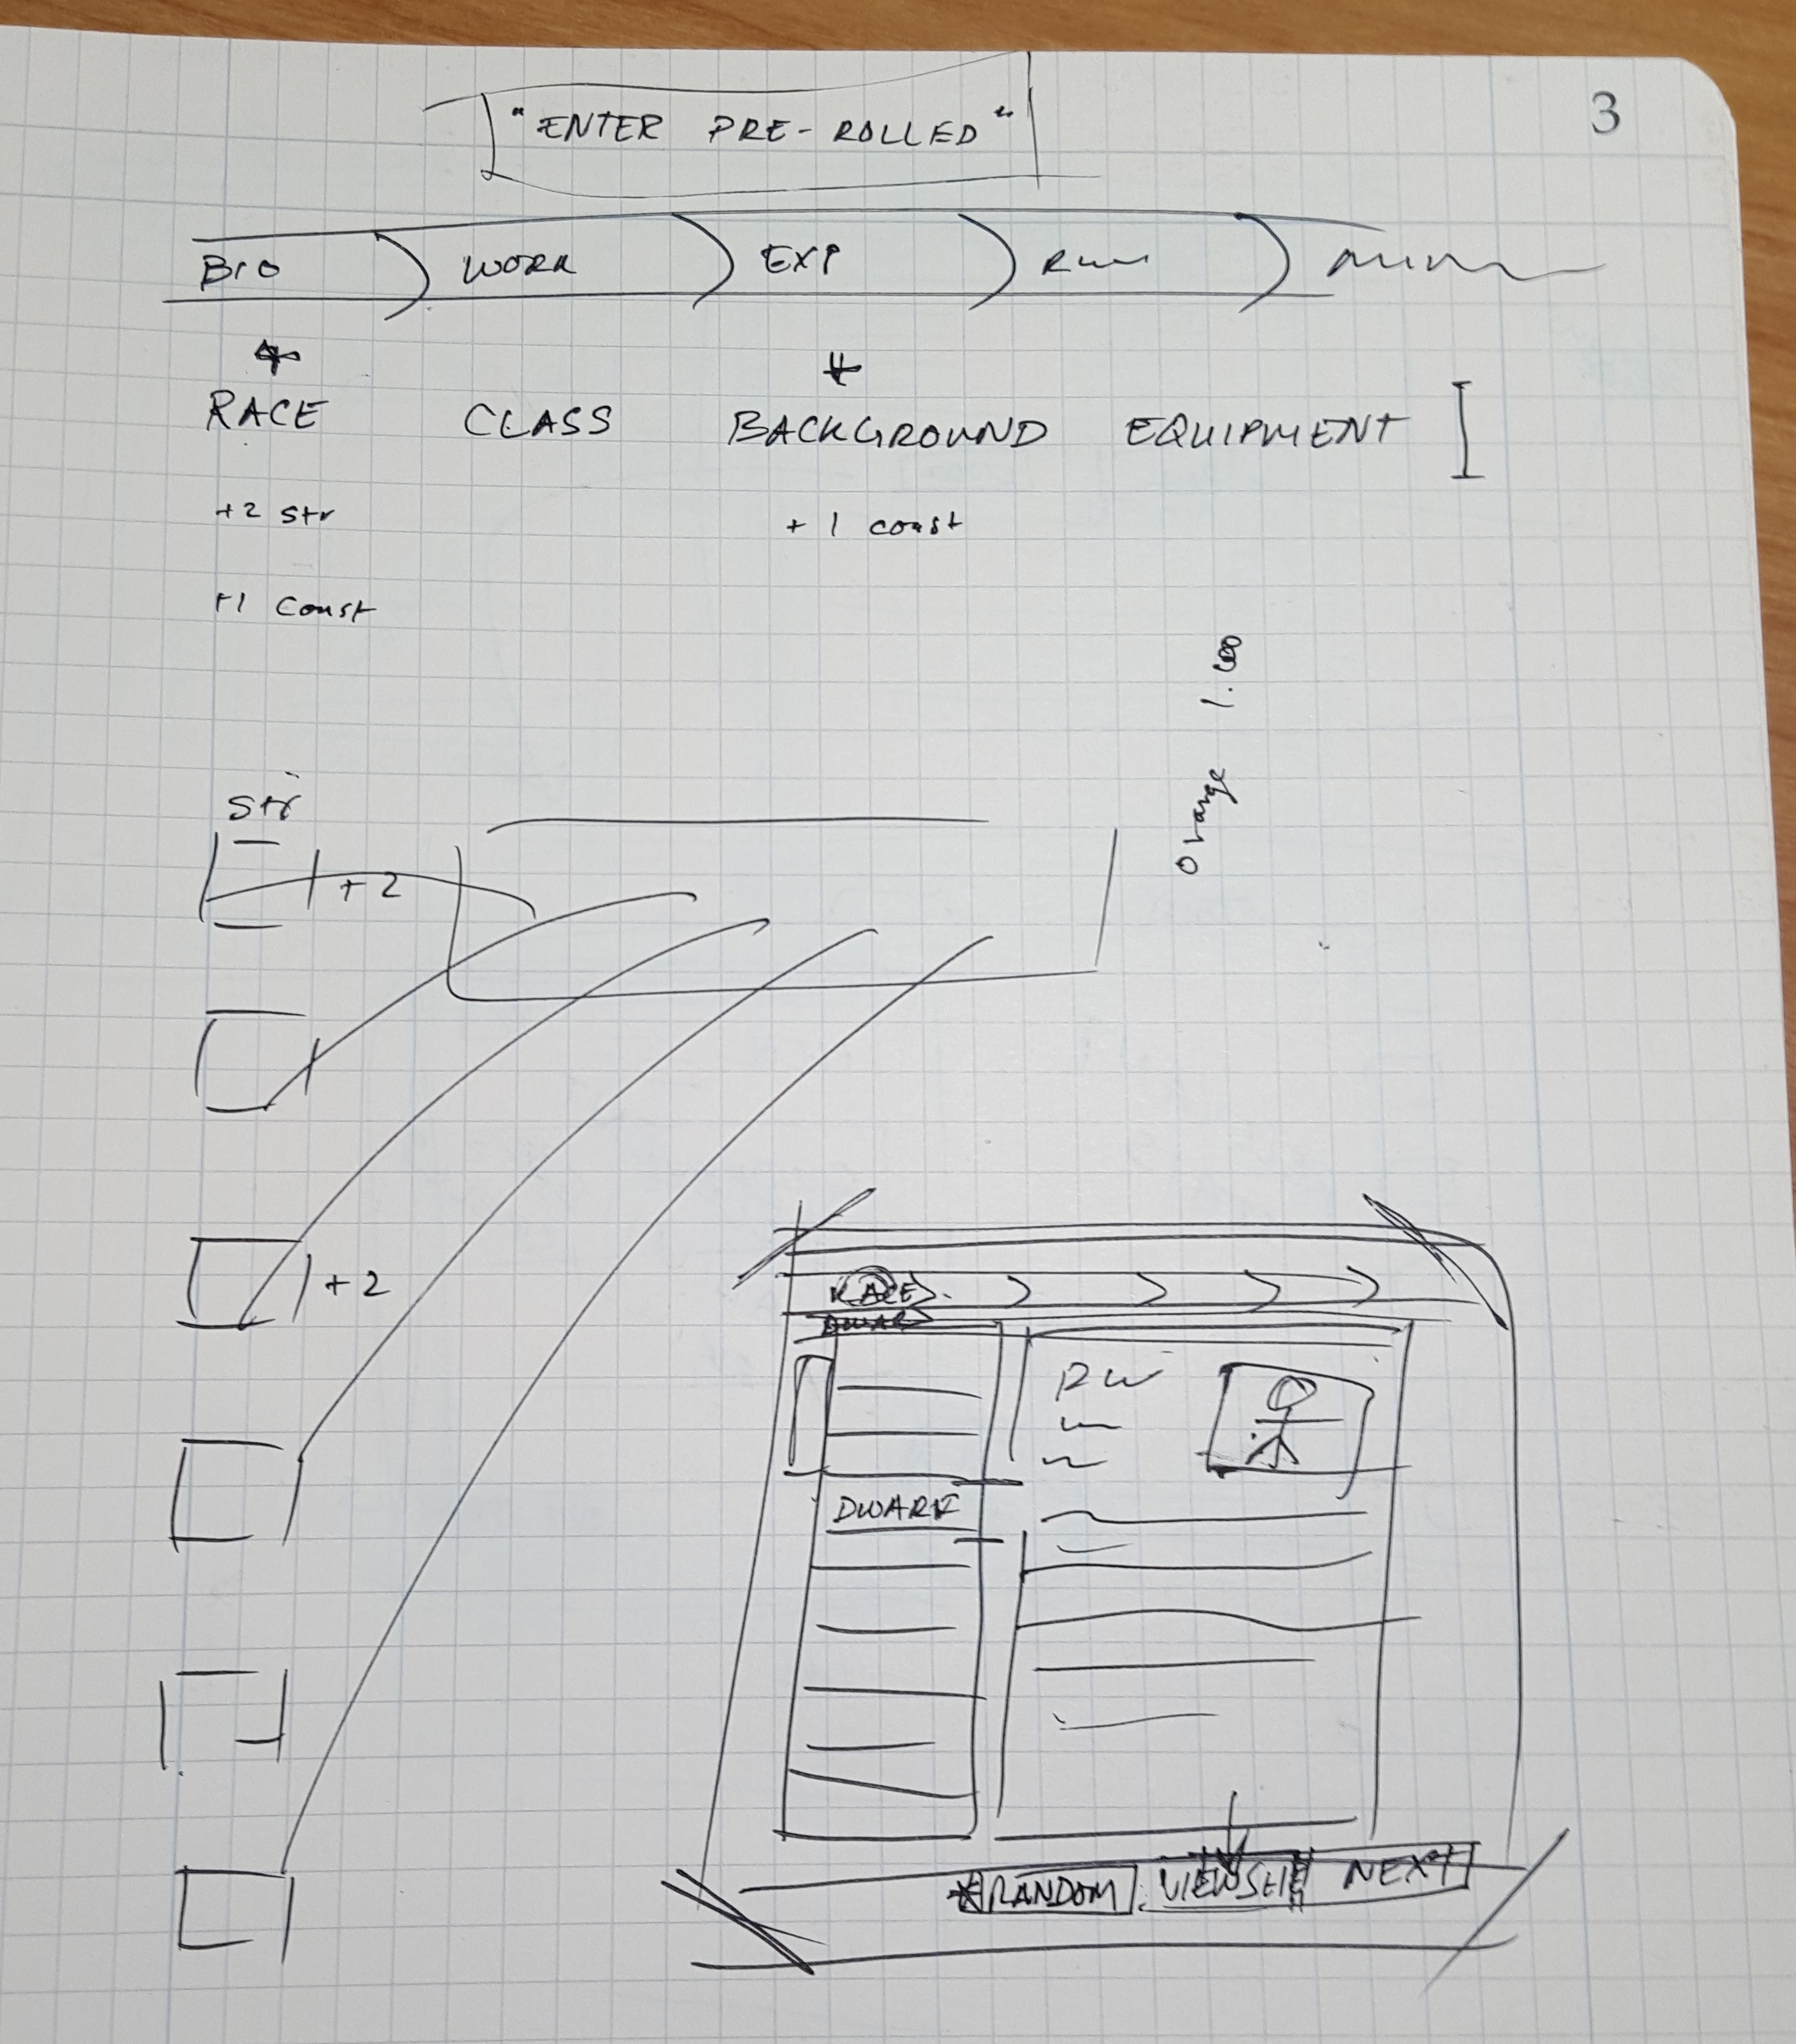 3
"ENTER PRE-ROLLED"
BIO WORK EXP
RACE CLASS BACKGROUND EQUIPMENT
+2 str + 1 const
+1 const
Orange 1.00
str
+2
+2
RACE
DWARF
RANDOM NEXT